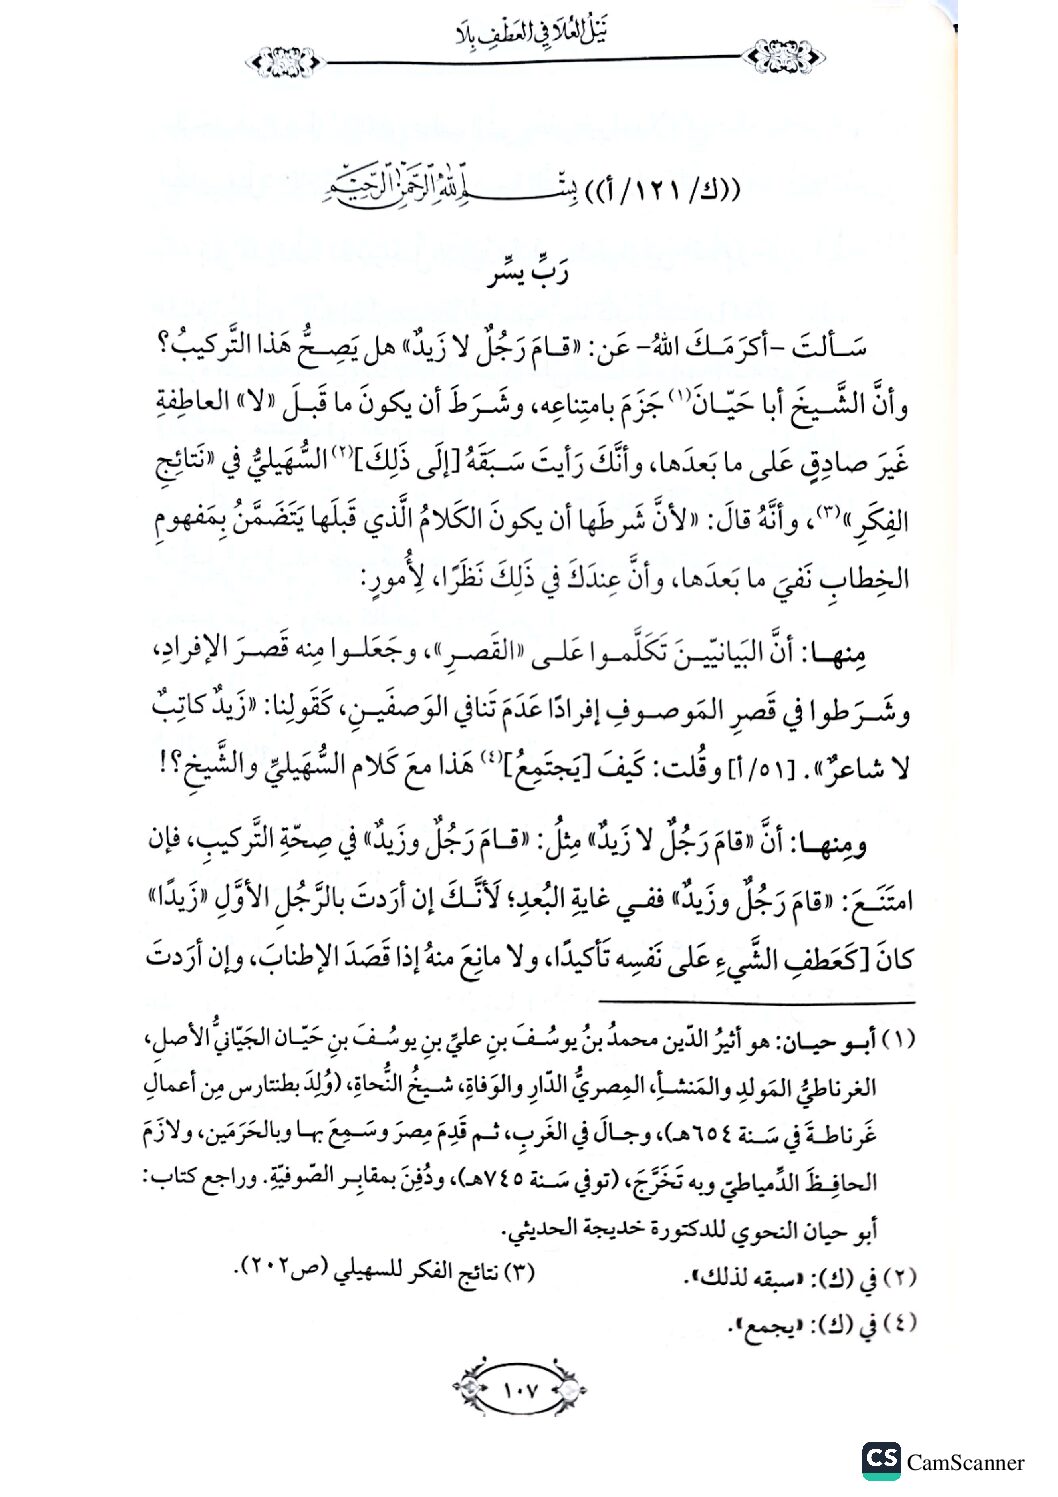 نَيْلُ العُلَا فِي العَطْفِ بِلَا
((ك/ ١٢١/ أ)) بِسْمِ اللهِ الرَّحْمَنِ الرَّحِيْمِ
رَبِّ يسِّر
سَألتَ -أكرَمَكَ اللهُ- عَن: «قامَ رَجُلٌ لا زَيدٌ» هل يَصِحُّ هَذا التَّركيبُ؟
وأنَّ الشَّيخَ أبا حَيّانَ(١) جَزَمَ بامتِناعِه، وشَرَطَ أن يكونَ ما قَبلَ «لا» العاطِفةِ
غَيرَ صادِقٍ عَلى ما بَعدَها، وأنَّكَ رَأيتَ سَبَقَهُ [إلَى ذَلِكَ](٢) السُّهَيليُّ في «نَتائِجِ
الفِكَرِ»(٣)، وأنَّهُ قالَ: «لأنَّ شَرطَها أن يكونَ الكَلامُ الَّذي قَبلَها يَتَضَمَّنُ بِمَفهومِ
الخِطابِ نَفيَ ما بَعدَها، وأنَّ عِندَكَ في ذَلِكَ نَظَرًا، لِأُمورٍ:
مِنها: أنَّ البَيانيّينَ تَكَلَّموا عَلى «القَصرِ»، وجَعَلوا مِنه قَصرَ الإفرادِ،
وشَرَطوا في قَصرِ المَوصوفِ إفرادًا عَدَمَ تَنافي الوَصفَينِ، كَقَولِنا: «زَيدٌ كاتِبٌ
لا شاعرٌ». [٥١/ أ] وقُلت: كَيفَ [يَجتَمِعُ](٤) هَذا معَ كَلام السُّهَيليِّ والشَّيخِ؟!
ومِنها: أنَّ «قامَ رَجُلٌ لا زَيدٌ» مِثلُ: «قامَ رَجُلٌ وزَيدٌ» في صِحّةِ التَّركيبِ، فإن
امتَنَعَ: «قامَ رَجُلٌ وزَيدٌ» ففي غايةِ البُعدِ؛ لَأنَّكَ إن أرَدتَ بالرَّجُلِ الأوَّلِ «زَيدًا»
كانَ [كَعَطفِ الشَّيءِ عَلى نَفسِه تَأكيدًا، ولا مانِعَ منهُ إذا قَصَدَ الإطنابَ، وإن أرَدتَ
(١) أبو حيان: هو أثيرُ الدّين محمدُ بنُ يوسُفَ بنِ عليِّ بنِ يوسُفَ بنِ حَيّان الجَيّانيُّ الأصلِ،
الغرناطيُّ المَولدِ والمَنشأِ، المِصريُّ الدّارِ والوَفاةِ، شيخُ النُّحاةِ، (وُلِدَ بطنتارس مِن أعمالِ
غَرناطةَ في سَنة ٦٥٤هـ)، وجالَ في الغَربِ، ثم قَدِمَ مِصرَ وسَمِعَ بها وبالحَرَمَين، ولازَمَ
الحافِظَ الدِّمياطيّ وبه تَخَرَّجَ، (توفي سَنة ٧٤٥هـ)، ودُفِنَ بمقابِر الصّوفيّةِ. وراجع كتاب:
أبو حيان النحوي للدكتورة خديجة الحديثي.
(٢) في (ك): «سبقه لذلك». (٣) نتائج الفكر للسهيلي (ص٢٠٢).
(٤) في (ك): «يجمع».
١٠٧
CS CamScanner